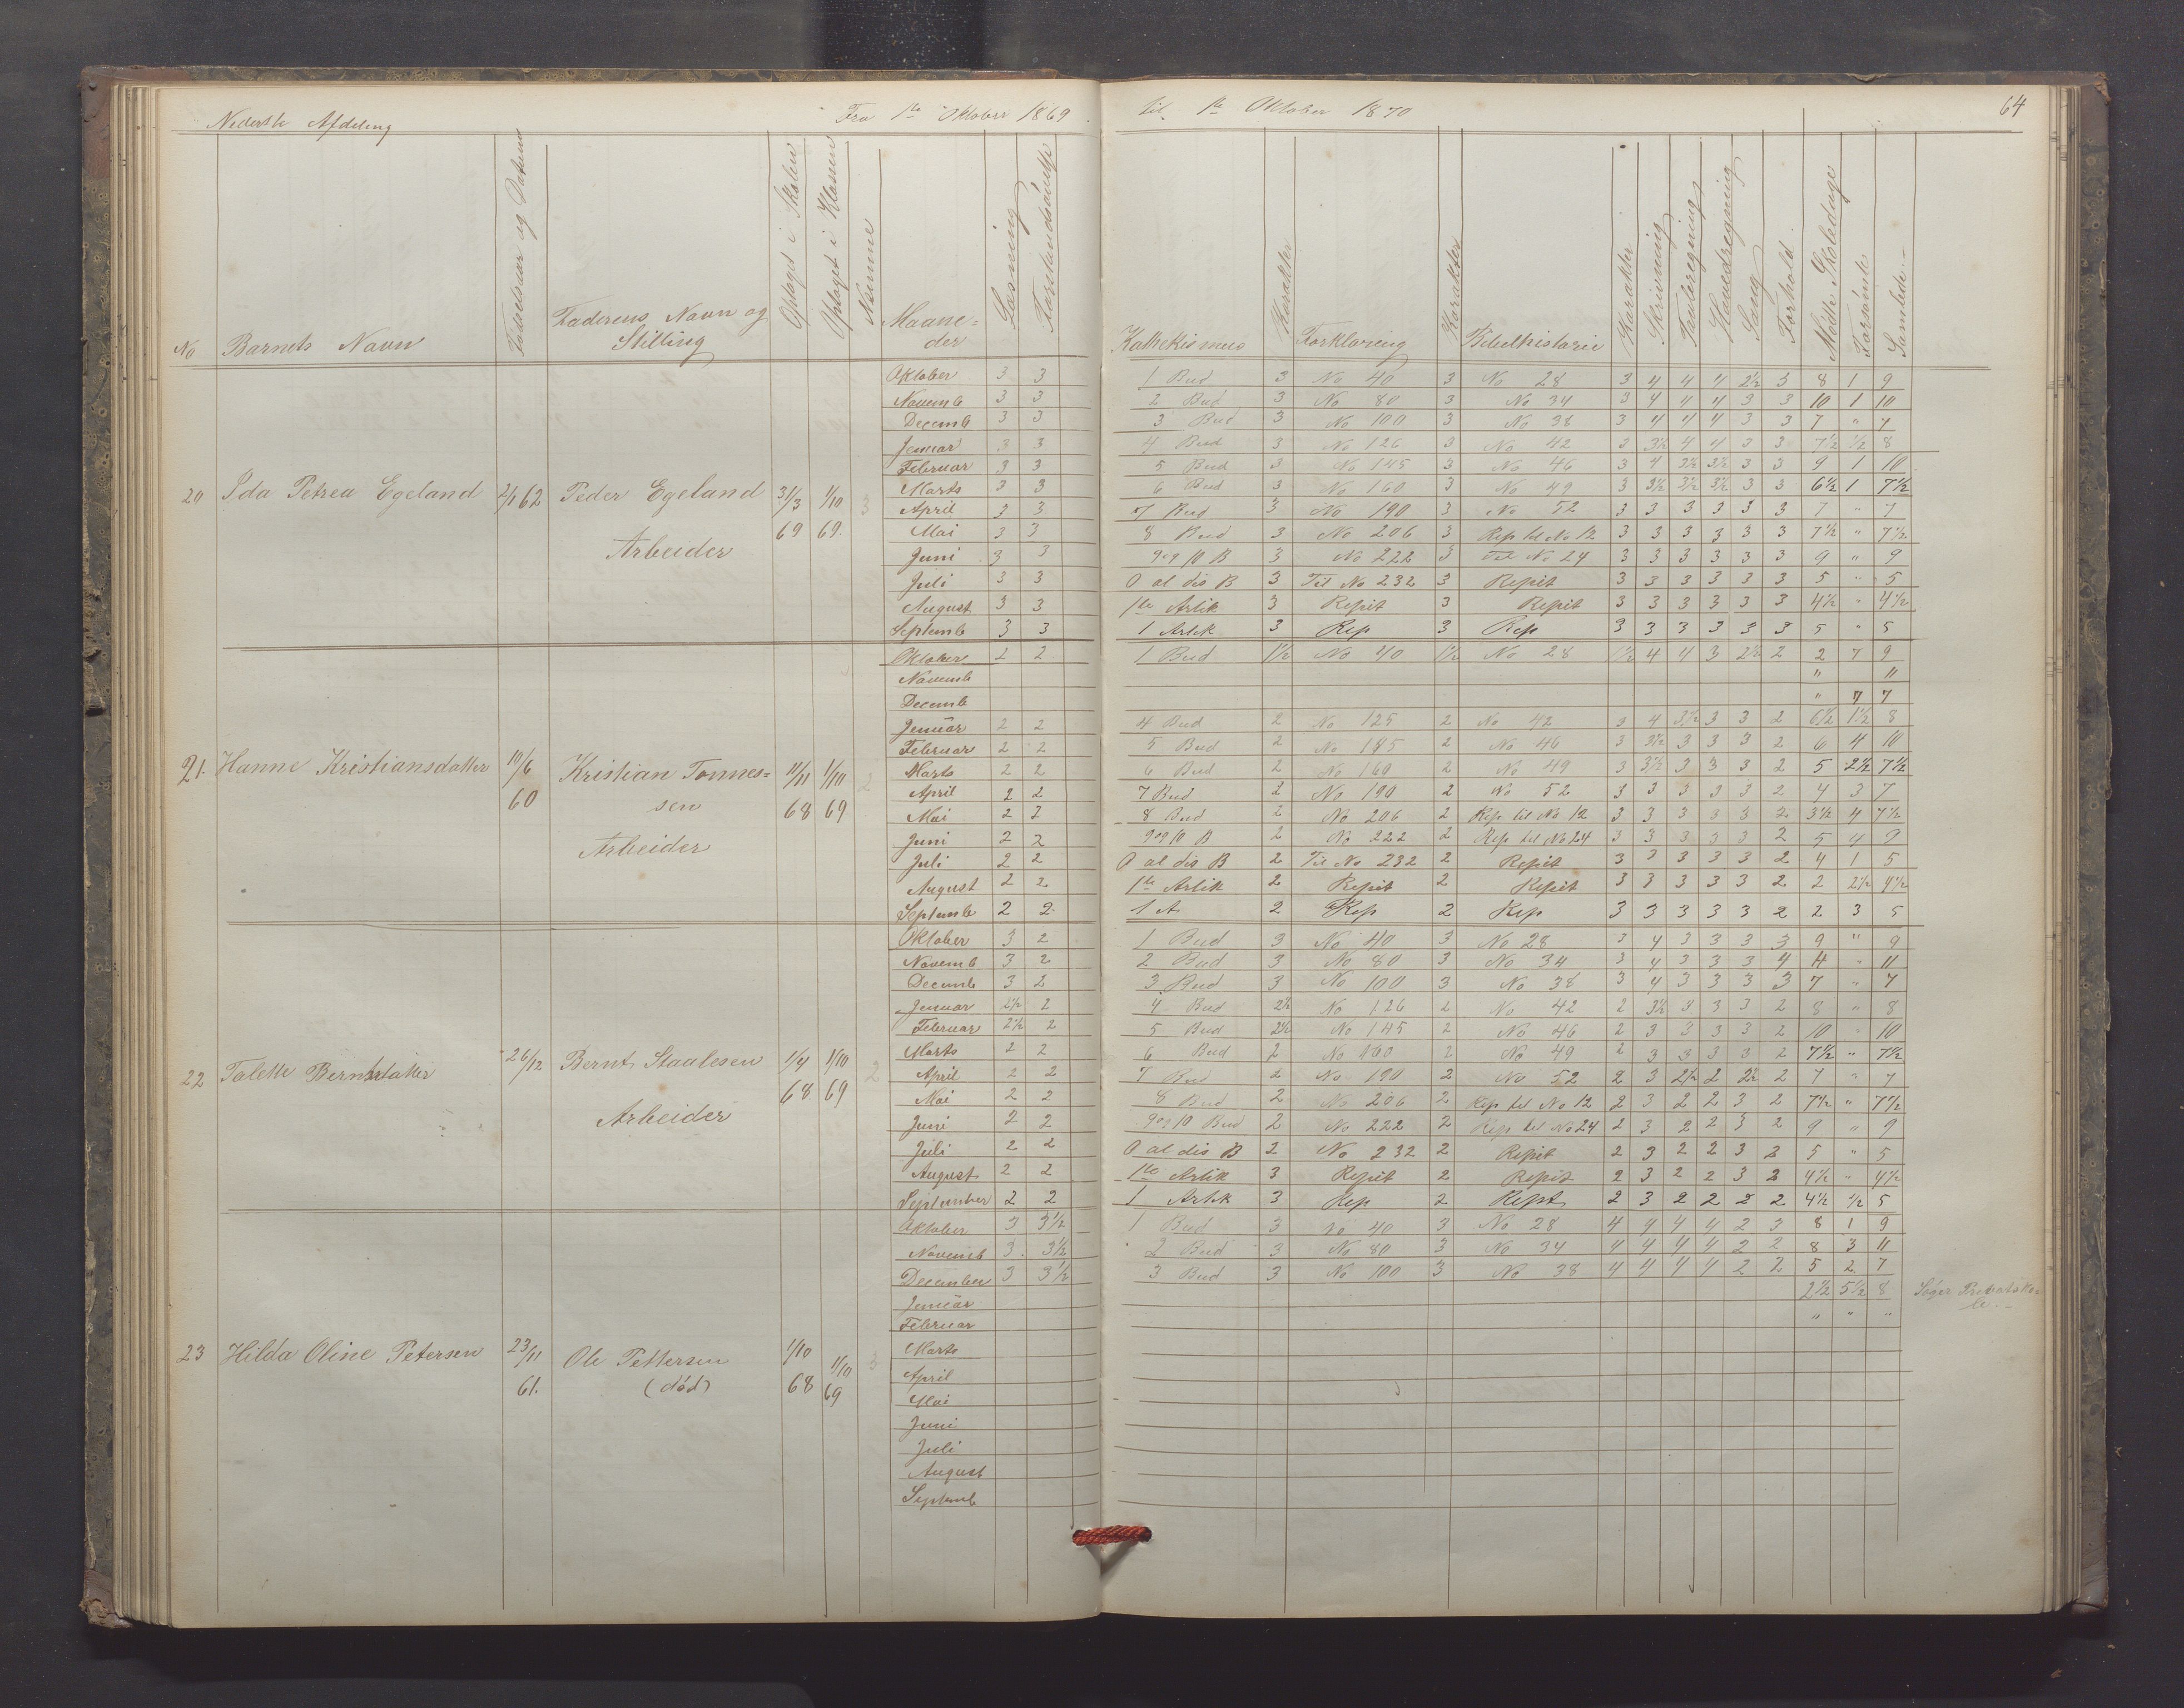 Nederste Afdeling Fra 1ste Oktober 1869 til 1ste Oktober 1870 64
No Barnets Navn Fødselsaar og Datum Faderens Navn og Stilling Optaget i Skolen Optaget i Klassen Nemme Maaneder Læsning Forstandsøvelse Kathekismus Karakter Forklaring Karakter Bibelhistorie Karakter Skrivning Tavleregning Hovedregning Sang Forhold Mødte Skoledage Forsømte Samlede
20 Ida Petrea Egeland 2/1 62 Peder Egeland Arbeider 31/3 69 1/10 69. 3
Oktober 3 3 1 Bud 3 No 40 3 No 28 3 4 4 4 2½ 3 8 1 9
Novemb 3 3 2 Bud 3 No 80 3 No 34 3 4 4 4 3 3 10 1 10
Decemb 3 3 3 Bud 3 No 100 3 No 38 3 4 4 4 3 3 7 " 7
Januar 3 3 4 Bud 3 No 126 3 No 42 3 3½ 4 4 3 3 7½ ½ 8
Februar 3 3 5 Bud 3 No 145 3 No 46 3 4 3½ 3½ 3 3 9 1 10
Marts 3 3 6 Bud 3 No 160 3 No 49 3 3½ 3½ 3½ 3 3 6½ 1 7½
April 3 3 7 Bud 3 No 190 3 No 52 3 3 3 3 3 3 7 " 7
Mai 3 3 8 Bud 3 No 206 3 Rep til No 12 3 3 3 3 3 3 7½ " 7½
Juni 3 3 9 og 10 B 3 No 222 3 til No 24 3 3 3 3 3 3 9 " 9
Juli 3 3 O al dis B 3 Til No 232 3 Repit 3 3 3 3 3 3 5 " 5
August 3 3 1ste Artik 3 Repit 3 Repit 3 3 3 3 3 3 4½ " 4½
Septemb 3 3 1 Artik 3 Rep 3 Rep 3 3 3 3 3 3 5 " 5
21. Hanne Kristiansdatter 10/6 60 Kristian Tønnes= sen Arbeider 11/11 68 1/10 69 2
Oktober 2 2 1 Bud 1½ No 40 1½ No 28 1½ 4 4 3 2½ 2 2 7 9
Novemb " 11
Decemb " 7 7
Januar 2 2 4 Bud 2 No 125 2 No 42 3 4 3½ 3 3 2 6½ 1½ 8
Februar 2 2 5 Bud 2 No 145 2 No 46 3 3½ 3 3 3 2 6 4 10
Marts 2 2 6 Bud 2 No 160 2 No 49 3 3½ 3 3 3 2 5 2½ 7½
April 2 2 7 Bud 2 No 190 2 No 52 3 3 3 3 3 2 4 3 7
Mai 2 2 8 Bud 2 No 206 2 Rep til No 12 3 3 3 3 3 2 3½ 4 7½
Juni 2 2 9 og 10 B 2 No 222 2 Rep til No 24 3 3 3 3 3 2 5 4 9
Juli 2 2 O al dis B 2 Til No 232 2 Repit 3 3 3 3 3 2 4 1 5
August 2 2 1ste Artik 2 Repit 2 Repit 3 3 3 3 3 2 2 2½ 4½
Septemb 2 2 1 A 2 Rep 2 Rep 3 3 3 3 3 2 2 3 5
22 Talette Berntsdatter 26/12 Bernt Staalesen Arbeider 1/4 68. 1/10 69 2
Oktober 3 2 1 Bud 3 No 40 3 No 28 3 4 3 3 3 3 9 " 9
Novemb 3 2 2 Bud 3 No 80 3 No 34 3 4 3 3 3 4 11 " 11
Decemb 3 2 3 Bud 3 No 100 3 No 38 3 4 3 3 3 3 7 " 7
Januar 2½ 2 4 Bud 2½ No 126 2 No 42 2 3½ 3 3 3 2 8 " 8
Februar 2½ 2 5 Bud 2½ No 145 2 No 46 2 3 3 3 3 2 10 " 10
Marts 2 2 6 Bud 2 No 160 2 No 49 2 3 3 3 3 2 7½ " 7½
April 2 2 7 Bud 2 No 190 2 No 52 2 3 2½ 2 2½ 2 7 " 7
Mai 2 2 8 Bud 2 No 206 2 Rep til No 12 2 3 2 2 3 2 7½ " 7½
Juni 2 2 9 og 10 Bud 2 No 222 2 Rep til No 24 2 3 2 2 3 2 9 " 9
Juli 2 2 O al dis B 2 No 232 2 Repit 2 3 2 2 3 2 5 " 5
August 2 2 1ste Artik 3 Repit 2 Repit 2 3 2 2 3 2 4½ " 4½
September 2 2 1 Artik 3 Rep 2 Rept 2 3 2 2 2 2 4½ ½ 5
23 Hilda Oline Petersen 23/11 61. Ole Pettersen (død) 1/10 68 1/10 69 3
Oktober 3 3½ 1 Bud 3 No 40 3 No 28 4 4 4 4 2 3 8 1 9
Novemb 3 3½ 2 Bud 3 No 80 3 No 34 4 4 4 4 2 2 8 3 11
December 3 3½ 3 Bud 3 No 100 3 No 38 4 4 4 4 2 2 5 2 7
Januar 2½ 5½ 8 Søger Privatsko le.
Februar " " "
Marts
April
Mai
Juni
Juli
August
Septemb